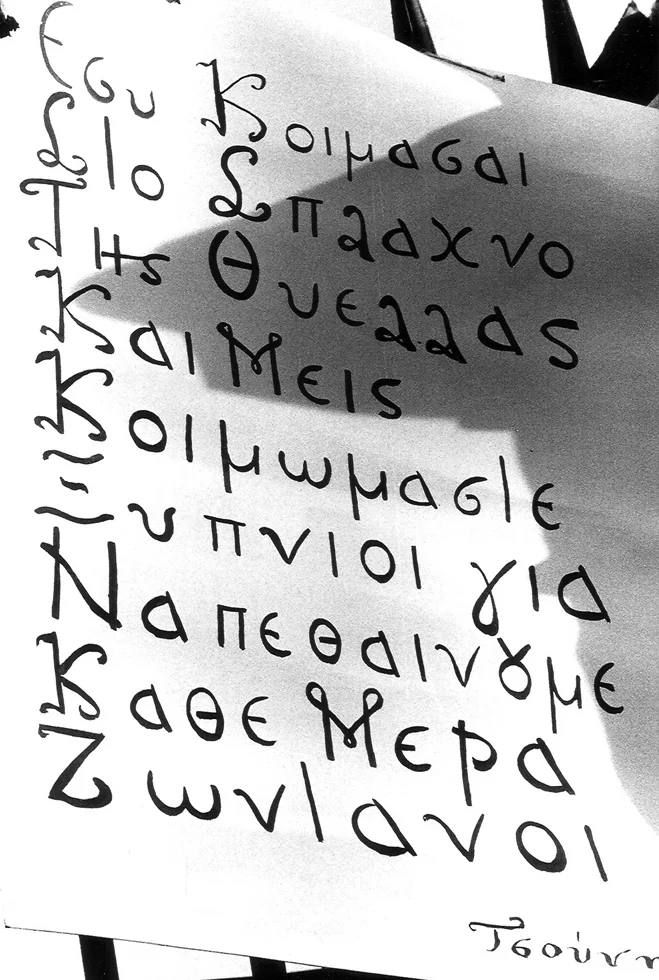 Εσυ Κοιμασαι
Στο Σπλαχνο
Της Θυελλας
Και Μεις
Κοιμωμαστε
Ξυπνιοι για
Να πεθαινουμε
Καθε Μερα
Ζωντανοι